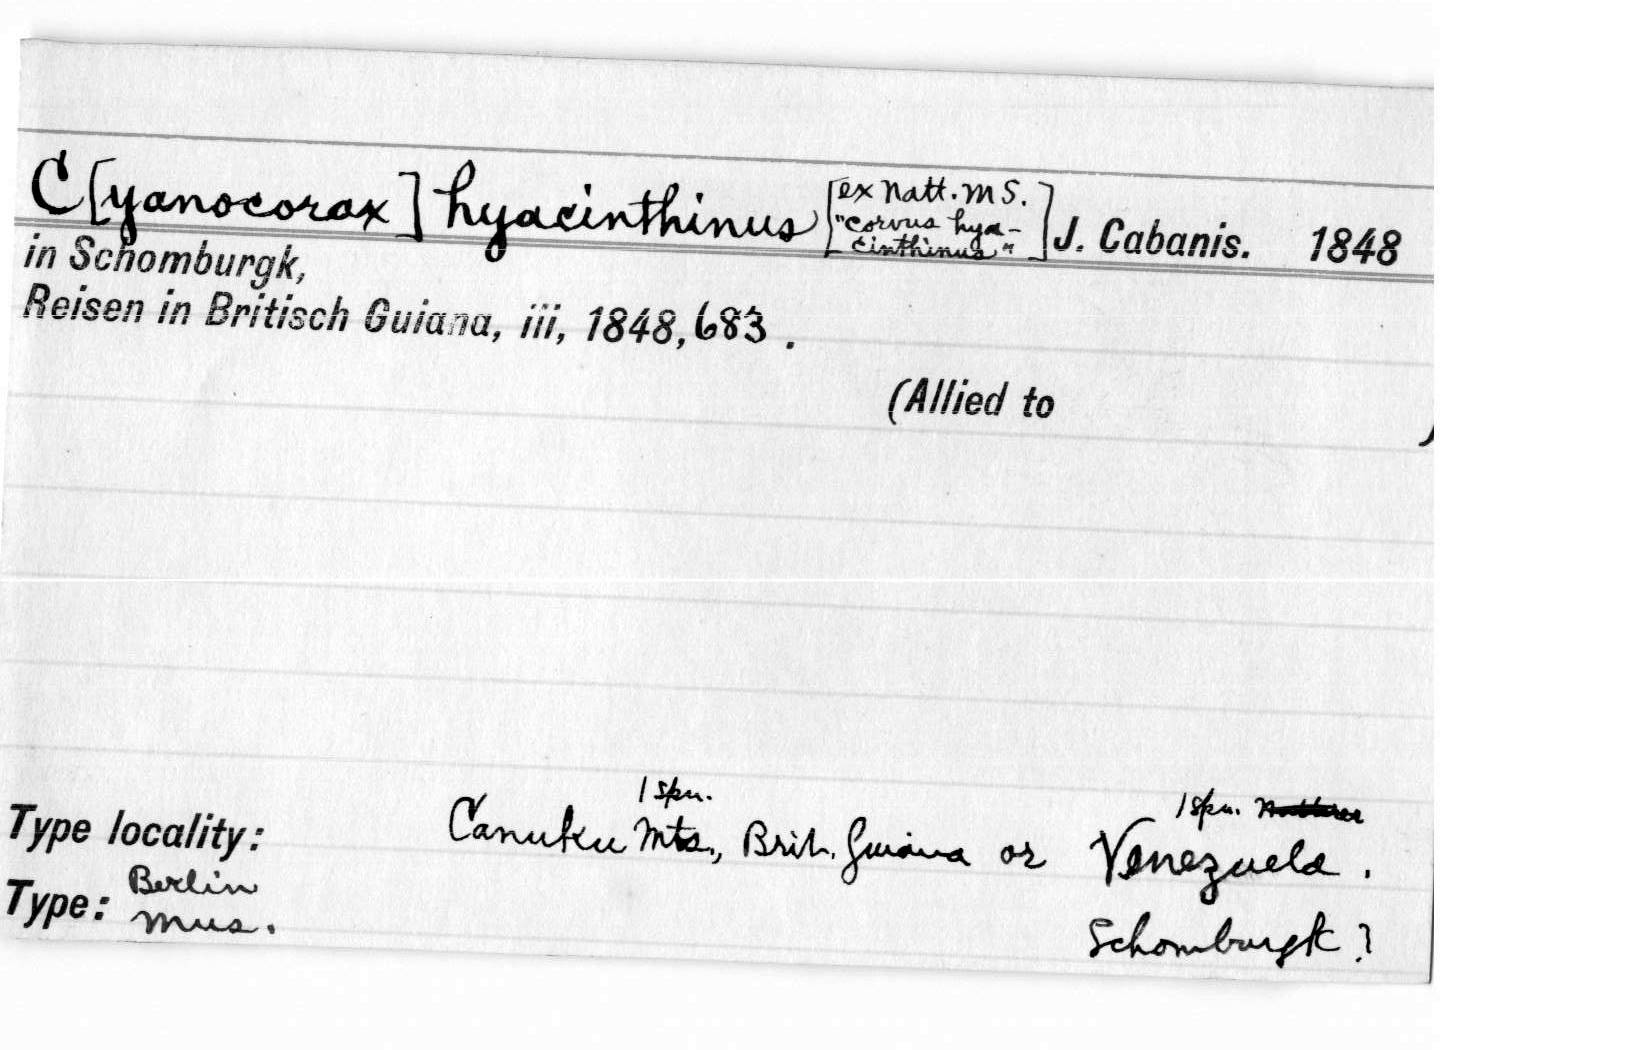 C[yanocorax] hyacinthinus [ex Natt. MS. "Corvus hya-
cinthinus"] J. Cabanis. 1848
in Schomburgk,
Reisen in Britisch Guiana, iii, 1848, 683.
(Allied to )
1 spn. 1 spn. Natterer
Type locality: Canuku Mts., Brit. Guiana or Venezuela.
Type: Berlin Mus. Schomburgk?